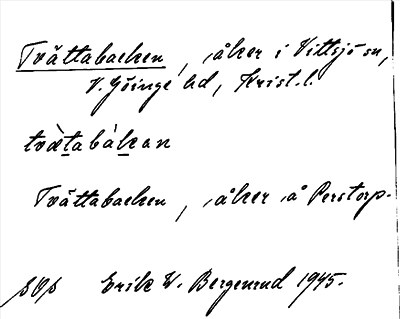 Tvättabacken, åker i Vittsjö sn,
V. Göinge hd, Krist. l.
tvæ̀tabákan
Tvättabacken, åker å Perstorp.
SOS Erik W. Bergenrud 1945.